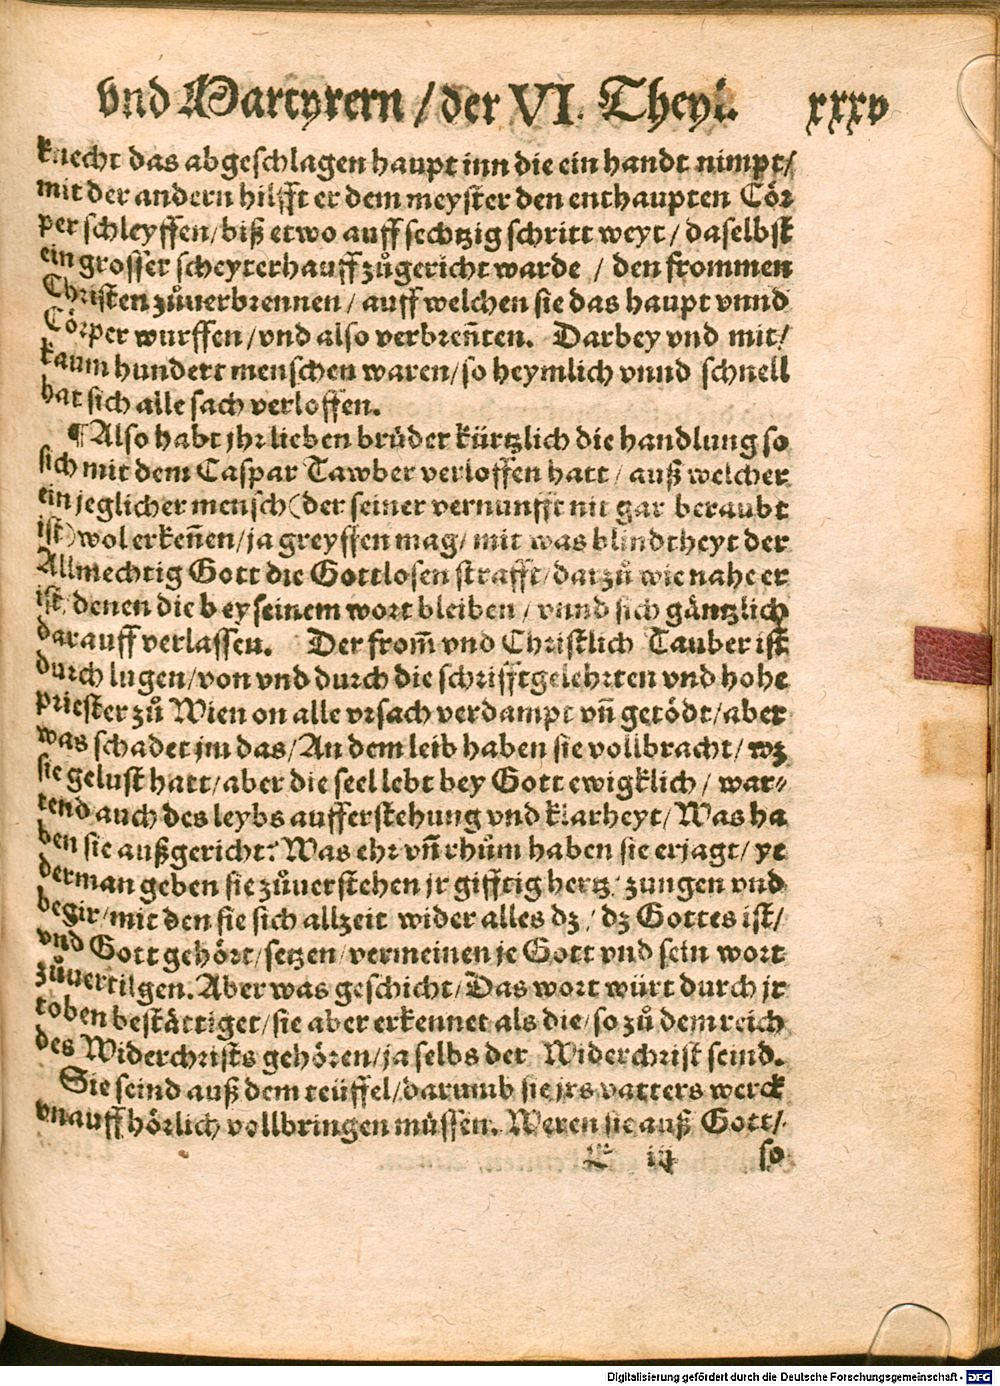 vnd Martyrern / der VI. Theyl. xxxv
knecht das abgeschlagen haupt inn die ein handt nimpt /
mit der andern hilfft er dem meyster den enthaupten Cör⸗
per schleyffen / biß etwo auff sechtzig schritt weyt / daselbst
ein grosser scheyterhauff zůgericht warde / den frommen
Christen zůuerbrennen / auff welchen sie das haupt vnnd
Cörper wurffen / vnd also verbreñten. Darbey vnd mit /
kaum hundert menschen waren / so heymlich vnnd schnell
hat sich alle sach verloffen.
¶ Also habt jhr lieben brüder kürtzlich die handlung so
sich mit dem Caspar Tawber verloffen hatt / auß welcher
ein jeglicher mensch (der seiner vernunfft nit gar beraubt
ist) wol erkeñen / ja greyffen mag / mit was blindtheyt der
Allmechtig Gott die Gottlosen strafft / darzů wie nahe er
ist / denen die bey seinem wort bleiben / vnnd sich gäntzlich
darauff verlassen. Der from̃ vnd Christlich Tauber ist
durch lugen / von vnd durch die schrifftgelehrten vnd hohe
priester zů Wien on alle vrsach verdampt vñ getödt / aber
was schadet jm das / An dem leib haben sie vollbracht / wz
sie gelust hatt / aber die seel lebt bey Gott ewigklich / war⸗
tend auch des leybs aufferstehung vnd klarheyt / Was ha
ben sie außgericht? Was ehr vñ rhům haben sie erjagt / ye
derman geben sie zůuerstehen jr gifftig hertz / zungen vnd
begir / mit den sie sich allzeit wider alles dz / dz Gottes ist /
vnd Gott gehört / setzen / vermeinen je Gott vnd sein wort
zůuertilgen. Aber was geschicht / Das wort würt durch jr
toben bestättiget / sie aber erkennet als die / so zů dem reich
des Widerchrists gehören / ja selbs der Widerchrist seind.
Sie seind auß dem teüffel / darumb sie jrs vatters werck
vnauffhörlich vollbringen müssen. Weren sie auß Gott /
iij so
Digitalisierung gefördert durch die Deutsche Forschungsgemeinschaft - DFG